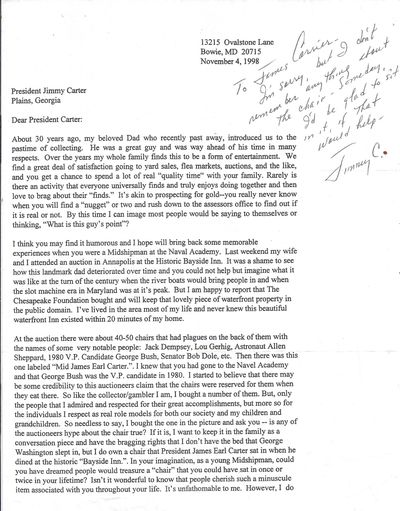 13215 Ovalstone Lane
Bowie, MD 20715
November 4, 1998
To James Carrier
I'm sorry, but I don't
remember any thing about
the chair - Someday,
I'd be glad to sit
in it, if that
would help -
Jimmy C.
President Jimmy Carter
Plains, Georgia
Dear President Carter:
About 30 years ago, my beloved Dad who recently past away, introduced us to the
pastime of collecting. He was a great guy and was way ahead of his time in many
respects. Over the years my whole family finds this to be a form of entertainment. We
find a great deal of satisfaction going to yard sales, flea markets, auctions, and the like,
and you get a chance to spend a lot of real "quality time" with your family. Rarely is
there an activity that everyone universally finds and truly enjoys doing together and then
love to brag about their "finds." It's akin to prospecting for gold--you really never know
when you will find a "nugget" or two and rush down to the assessors office to find out if
it is real or not. By this time I can image most people would be saying to themselves or
thinking, "What is this guy's point"?
I think you may find it humorous and I hope will bring back some memorable
experiences when you were a Midshipman at the Naval Academy. Last weekend my wife
and I attended an auction in Annapolis at the Historic Bayside Inn. It was a shame to see
how this landmark dad deteriorated over time and you could not help but imagine what it
was like at the turn of the century when the river boats would bring people in and when
the slot machine era in Maryland was at it's peak. But I am happy to report that The
Chesapeake Foundation bought and will keep that lovely piece of waterfront property in
the public domain. I've lived in the area most of my life and never knew this beautiful
waterfront Inn existed within 20 minutes of my home.
At the auction there were about 40-50 chairs that had plagues on the back of them with
the names of some very notable people: Jack Dempsey, Lou Gerhig, Astronaut Allen
Sheppard, 1980 V.P. Candidate George Bush, Senator Bob Dole, etc. Then there was this
one labeled "Mid James Earl Carter.". I knew that you had gone to the Navel Academy
and that George Bush was the V.P. candidate in 1980. I started to believe that there may
be some credibility to this auctioneers claim that the chairs were reserved for them when
they eat there. So like the collector/gambler I am, I bought a number of them. But, only
the people that I admired and respected for their great accomplishments, but more so for
the individuals I respect as real role models for both our society and my children and
grandchildren. So needless to say, I bought the one in the picture and ask you -- is any of
the auctioneers hype about the chair true? If it is, I want to keep it in the family as a
conversation piece and have the bragging rights that I don't have the bed that George
Washington slept in, but I do own a chair that President James Earl Carter sat in when he
dined at the historic "Bayside Inn.". In your imagination, as a young Midshipman, could
you have dreamed people would treasure a "chair" that you could have sat in once or
twice in your lifetime? Isn't it wonderful to know that people cherish such a minuscule
item associated with you throughout your life. It's unfathomable to me. However, I do